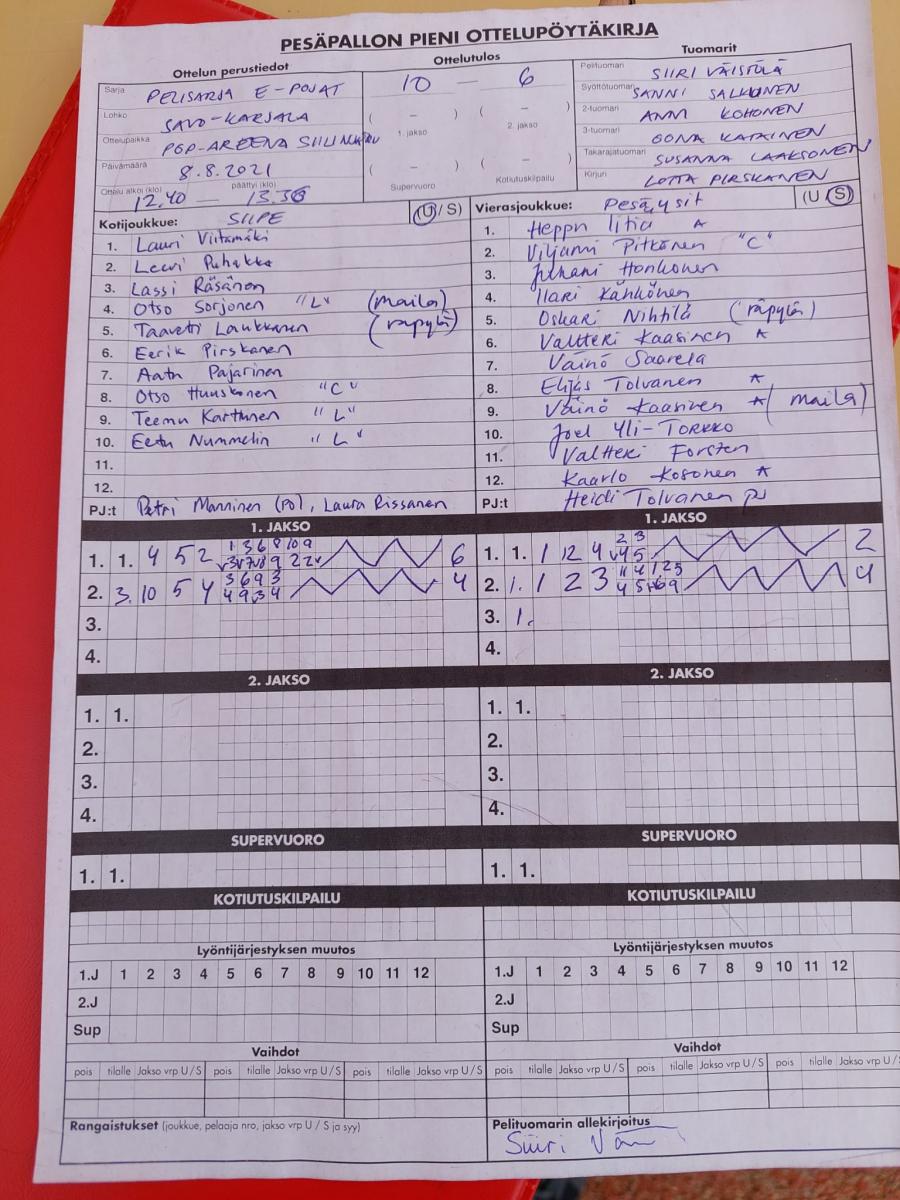 PESÄPALLON PIENI OTTELUPÖYTÄKIRJA
Ottelun perustiedot
Ottelutulos
Tuomarit
Sarja PELISARJA E-POJAT
Lohko SAVO-KARJALA
Ottelupaikka PGP-AREENA SIILINJÄRVI
Päivämäärä 8.8.2021
Ottelu alkoi (klo) 12.40 — päättyi (klo) 13.36
10 — 6
( – ) ( – )
1. jakso 2. jakso
( – ) ( – )
Supervuoro Kotiutuskilpailu
Pelituomari SIIRI VÄISTÖLÄ
Syöttötuomari SANNI SALKUNEN
2-tuomari ANNI KOHONEN
3-tuomari OONA KATAINEN
Takarajatuomari SUSANNA LAAKSONEN
Kirjuri LOTTA PIRSKANEN
Kotijoukkue: SIIPE (U / S)
1. Lauri Viitamäki
2. Leevi Puhakka
3. Lassi Räsänen
4. Otso Sorjonen "L" (maila)
5. Taavetti Laukkanen (räpylä)
6. Eerik Pirskanen
7. Aatu Pajarinen
8. Otso Huuskonen "C"
9. Teemu Karttunen "L"
10. Eetu Nummelin "L"
11.
12.
PJ:t Petri Manninen (PJ), Laura Rissanen
Vierasjoukkue: Pesäysit (U / S)
1. Heppu Iitia *
2. Viljami Pitkänen "C"
3. Juhani Honkonen
4. Ilari Kähkönen
5. Oskari Nihtilä (räpylä)
6. Valtteri Kaasinen *
7. Väinö Saarela
8. Elijas Tolvanen *
9. Väinö Kaasinen * (maila)
10. Joel Yli-TORKKO
11. Valtteri Forsten
12. Kaarlo Kosonen *
PJ:t Heidi Tolvanen pj
1. JAKSO
1. 1. 4 5 2 6
2. 3. 10 5 4 4
3.
4.
1. JAKSO
1. 1. 1 12 4 2
2. 1. 1 2 3 4
3. 1.
4.
2. JAKSO
1. 1.
2.
3.
4.
2. JAKSO
1. 1.
2.
3.
4.
SUPERVUORO
1. 1.
SUPERVUORO
1. 1.
KOTIUTUSKILPAILU
KOTIUTUSKILPAILU
Lyöntijärjestyksen muutos
1.J 1 2 3 4 5 6 7 8 9 10 11 12
2.J
Sup
Lyöntijärjestyksen muutos
1.J 1 2 3 4 5 6 7 8 9 10 11 12
2.J
Sup
Vaihdot
pois tilalle Jakso vrp U / S pois tilalle Jakso vrp U / S pois tilalle Jakso vrp U / S
Vaihdot
pois tilalle Jakso vrp U / S pois tilalle Jakso vrp U / S pois tilalle Jakso vrp U / S
Rangaistukset (joukkue, pelaaja nro, jakso vrp U / S ja syy)
Pelituomarin allekirjoitus
Siiri